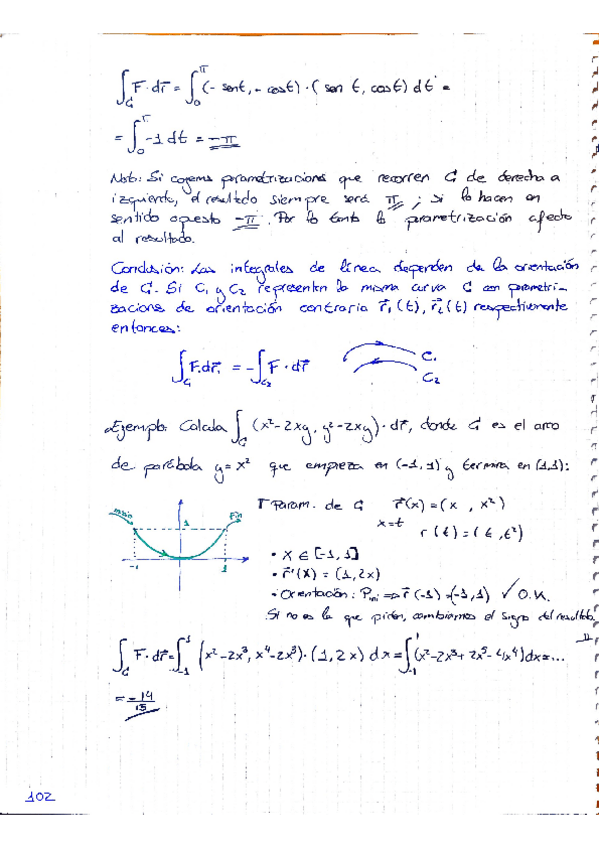 ∫_C F·dr⃗ = ∫_0^π (- sent, - cost) · (sen t, cost) dt =
= ∫_0^π -1 dt = -π
Nota: Si cogemos parametrizaciones que recorren C de derecha a
izquierda, el resultado siempre será π ; si lo hacen en
sentido opuesto -π. Por lo tanto la parametrización afecta
al resultado.
Conclusión: Las integrales de línea dependen de la orientación
de C. Si C₁ y C₂ representan la misma curva C con parametri-
zaciones de orientación contraria r⃗₁(t), r⃗₂(t) respectivamente
entonces:
∫_C₁ F·dr⃗₁ = -∫_C₂ F·dr⃗
C₁
C₂
Ejemplo: Calcula ∫_C (x²-2xy, y²-2xy)·dr⃗, donde C es el arco
de parábola y=x² que empieza en (-1,1) y termina en (1,1):
inicio
1
Fin
-1
1
Param. de C r⃗(x) = (x , x²)
x=t
r(t) = (t, t²)
• x ∈ [-1, 1]
• r⃗'(x) = (1, 2x)
• Orientación: P_ini ⇒ r⃗(-1) = (-1,1) ✓ O.K.
Si no es la que piden, cambiamos el signo del resultado.
∫_C F·dr⃗ = ∫_-1^1 (x²-2x³, x⁴-2x³)·(1, 2x) dx = ∫_-1^1 (x²-2x³+2x⁵-4x⁴)dx=...
= -14/15
102